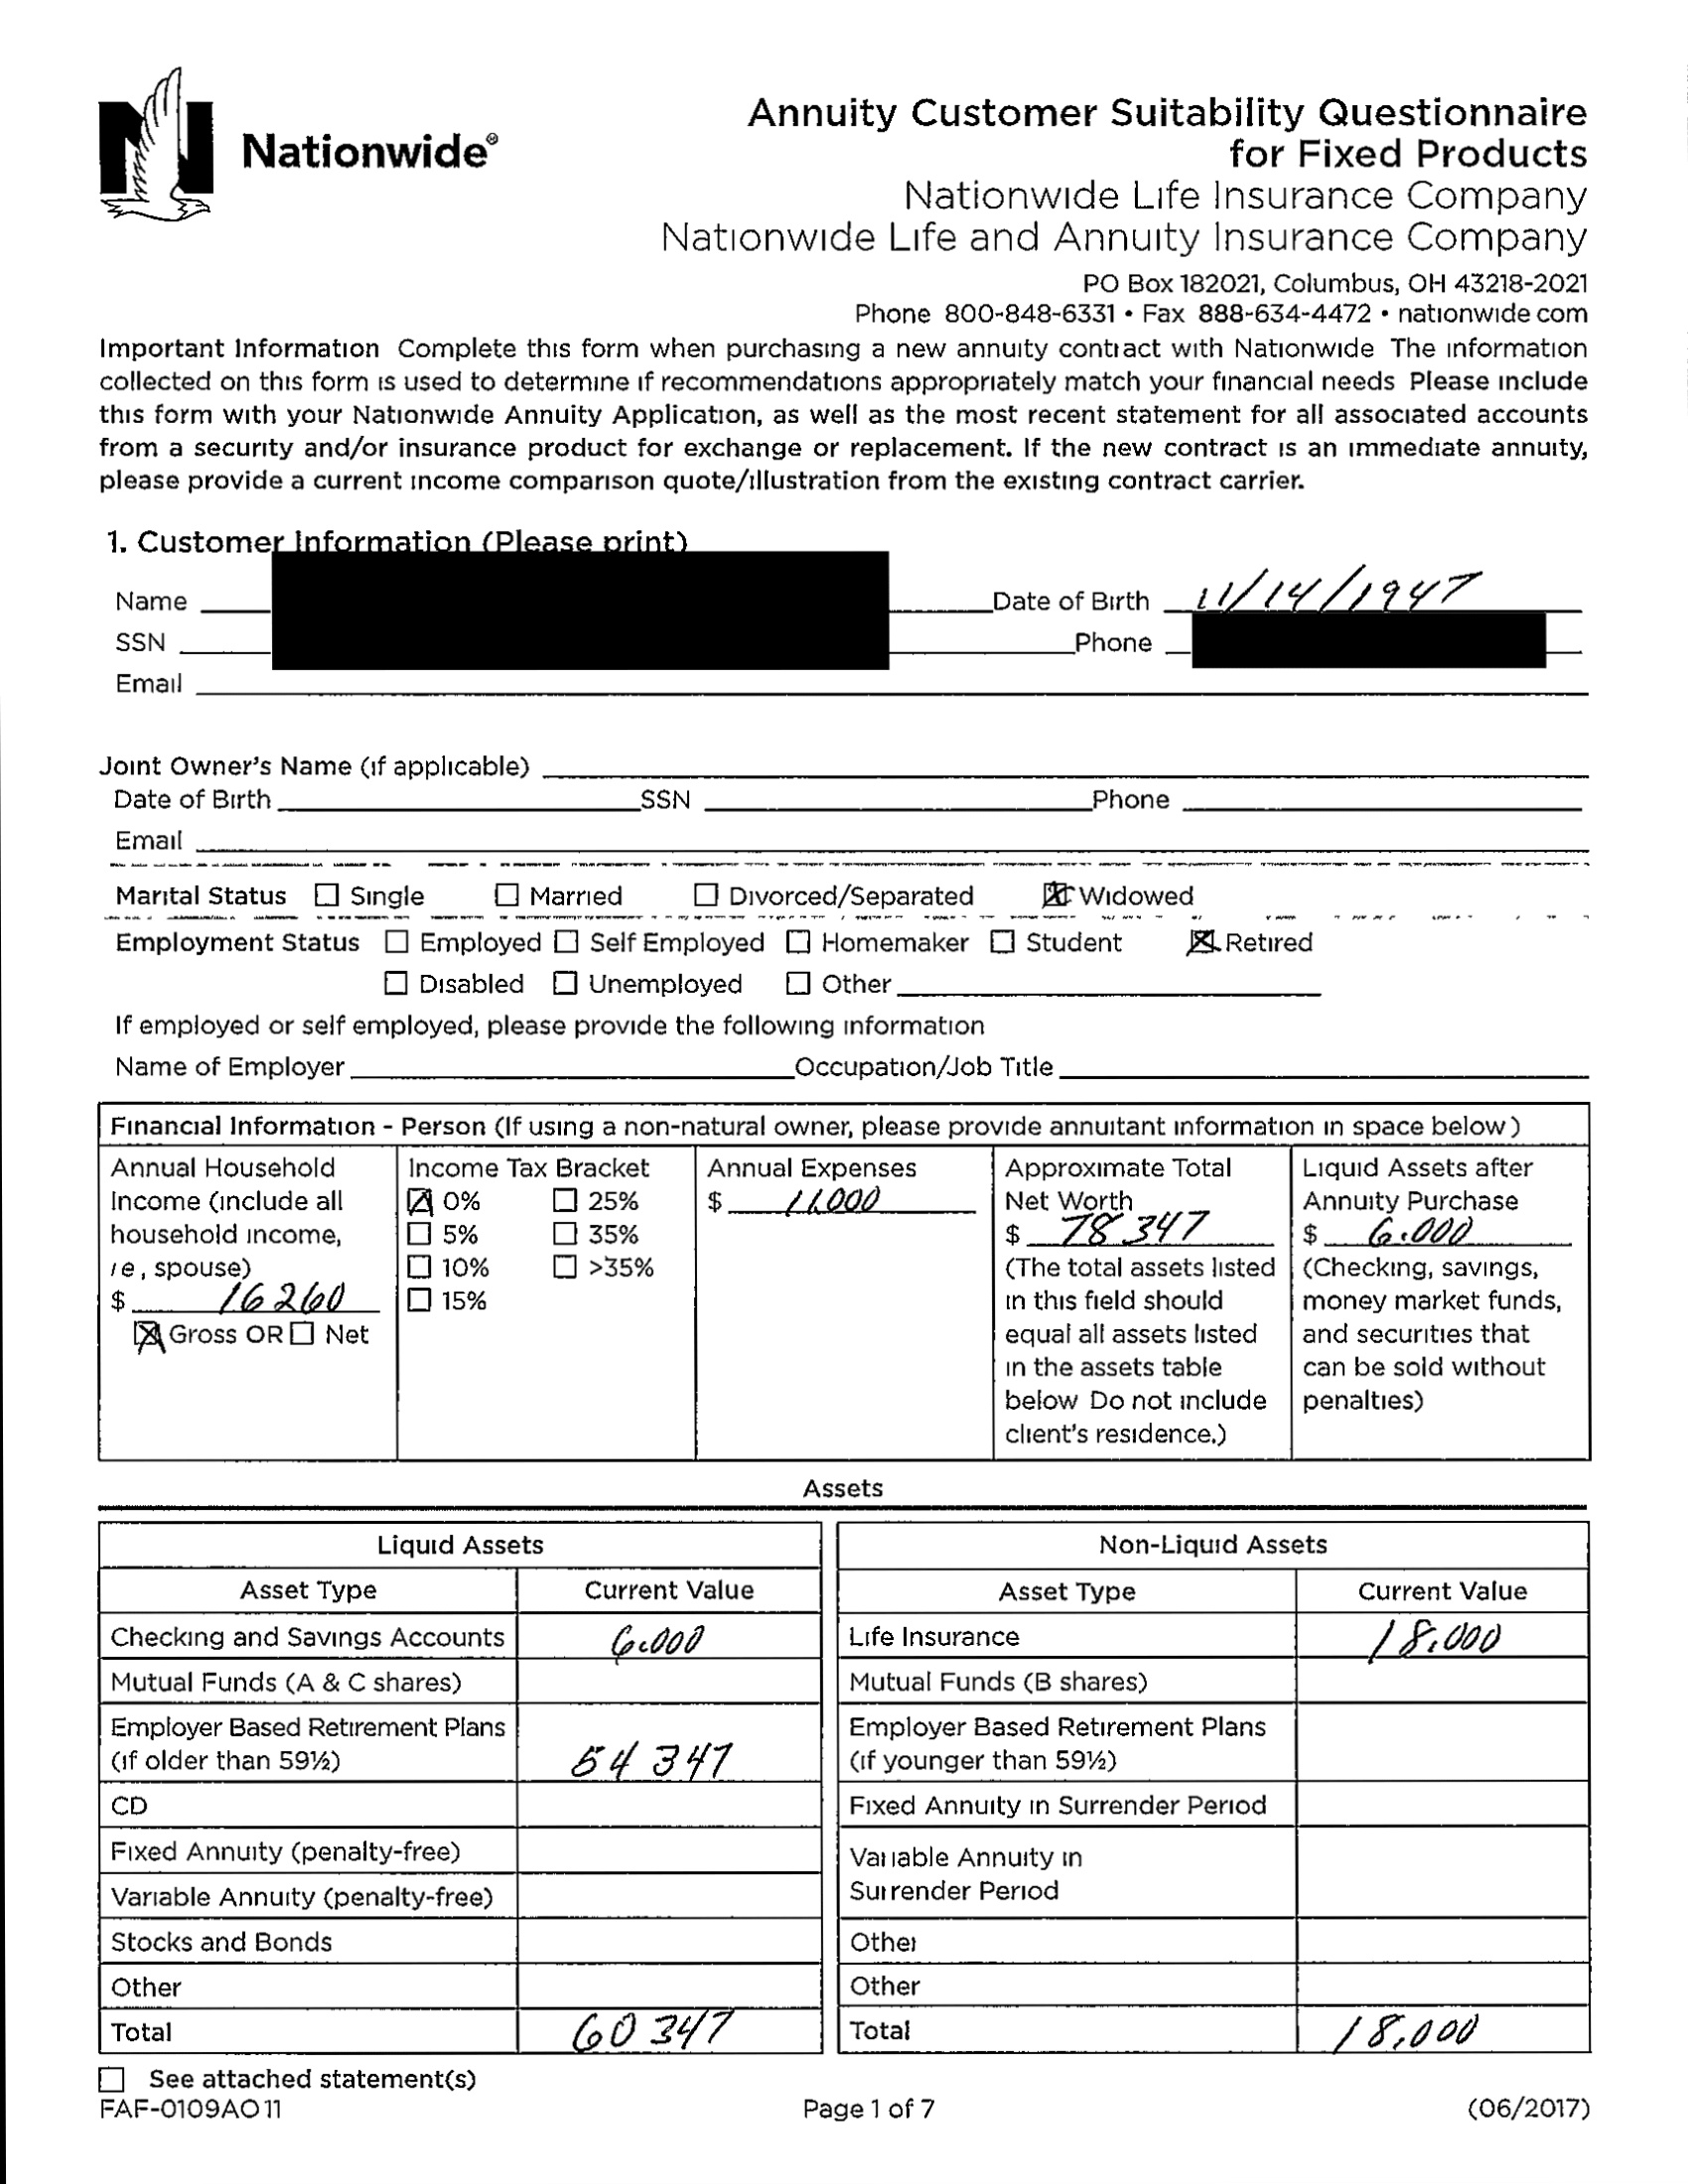 Nationwide®
Annuity Customer Suitability Questionnaire
for Fixed Products
Nationwide Life Insurance Company
Nationwide Life and Annuity Insurance Company
PO Box 182021, Columbus, OH 43218-2021
Phone 800-848-6331 • Fax 888-634-4472 • nationwide com
Important Information Complete this form when purchasing a new annuity contract with Nationwide The information
collected on this form is used to determine if recommendations appropriately match your financial needs Please include
this form with your Nationwide Annuity Application, as well as the most recent statement for all associated accounts
from a security and/or insurance product for exchange or replacement. If the new contract is an immediate annuity,
please provide a current income comparison quote/illustration from the existing contract carrier.
1. Customer Information (Please print)
Name Date of Birth 11/14/1947
SSN Phone
Email
Joint Owner's Name (if applicable)
Date of Birth SSN Phone
Email
Marital Status ☐ Single ☐ Married ☐ Divorced/Separated ☒ Widowed
Employment Status ☐ Employed ☐ Self Employed ☐ Homemaker ☐ Student ☒ Retired
☐ Disabled ☐ Unemployed ☐ Other
If employed or self employed, please provide the following information
Name of Employer Occupation/Job Title
Financial Information - Person (If using a non-natural owner, please provide annuitant information in space below)
Annual Household
Income (include all
household income,
ie, spouse)
$ 16260
☒ Gross OR ☐ Net
Income Tax Bracket
☒ 0% ☐ 25%
☐ 5% ☐ 35%
☐ 10% ☐ >35%
☐ 15%
Annual Expenses
$ 11,000
Approximate Total
Net Worth
$ 78 347
(The total assets listed
in this field should
equal all assets listed
in the assets table
below Do not include
client's residence.)
Liquid Assets after
Annuity Purchase
$ 6,000
(Checking, savings,
money market funds,
and securities that
can be sold without
penalties)
Assets
Liquid Assets
Asset Type Current Value
Checking and Savings Accounts 6,000
Mutual Funds (A & C shares)
Employer Based Retirement Plans
(if older than 59½) 54 347
CD
Fixed Annuity (penalty-free)
Variable Annuity (penalty-free)
Stocks and Bonds
Other
Total 60 347
Non-Liquid Assets
Asset Type Current Value
Life Insurance 18,000
Mutual Funds (B shares)
Employer Based Retirement Plans
(if younger than 59½)
Fixed Annuity in Surrender Period
Variable Annuity in
Surrender Period
Other
Other
Total 18,000
☐ See attached statement(s)
FAF-0109AO 11 Page 1 of 7 (06/2017)